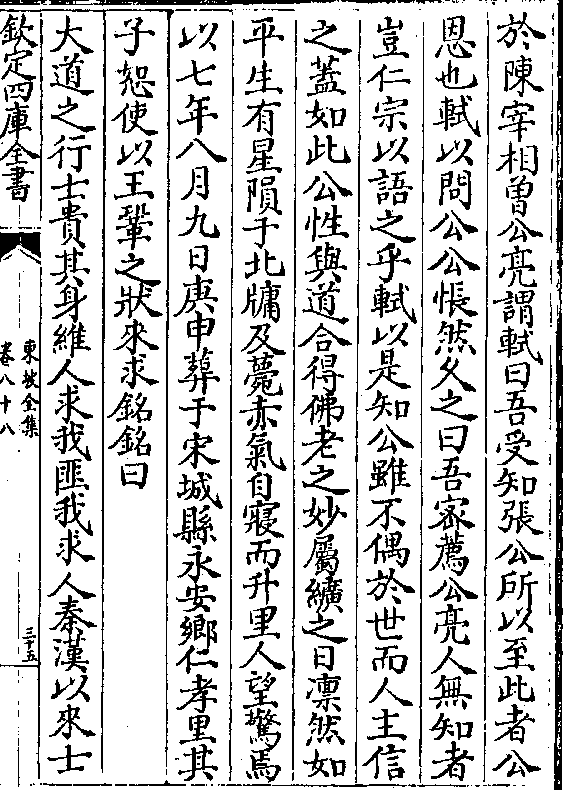 於陳宰相曽公亮謂軾曰吾受知張公所以至此者公
恩也軾以問公公悵然久之曰吾宻薦公亮人無知者
豈仁宗以語之乎軾以是知公雖不偶於世而人主信
之蓋如此公性與道合得佛老之妙屬纊之日凛然如
平生有星隕于北牖及薨赤氣自寢而升里人望驚焉
以七年八月九日庚申葬于宋城縣永安鄉仁孝里其
子恕使以王鞏之狀來求銘銘曰
大道之行士貴其身維人求我匪我求人秦漢以來士
欽定四庫全書
東坡全集
卷八十八
三十五